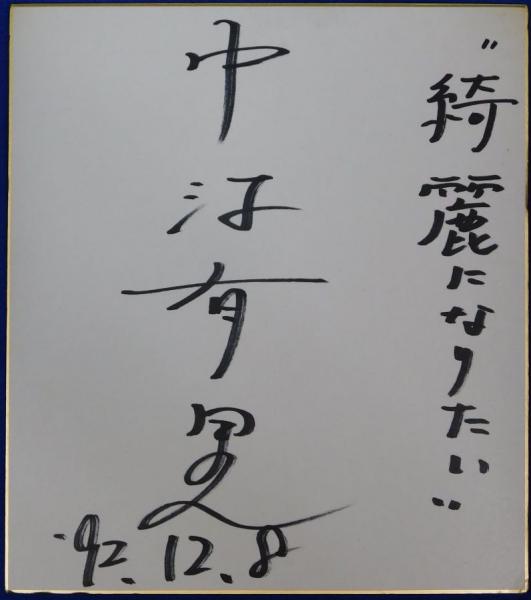 "綺麗になりたい"
中江有里
'92.12.8